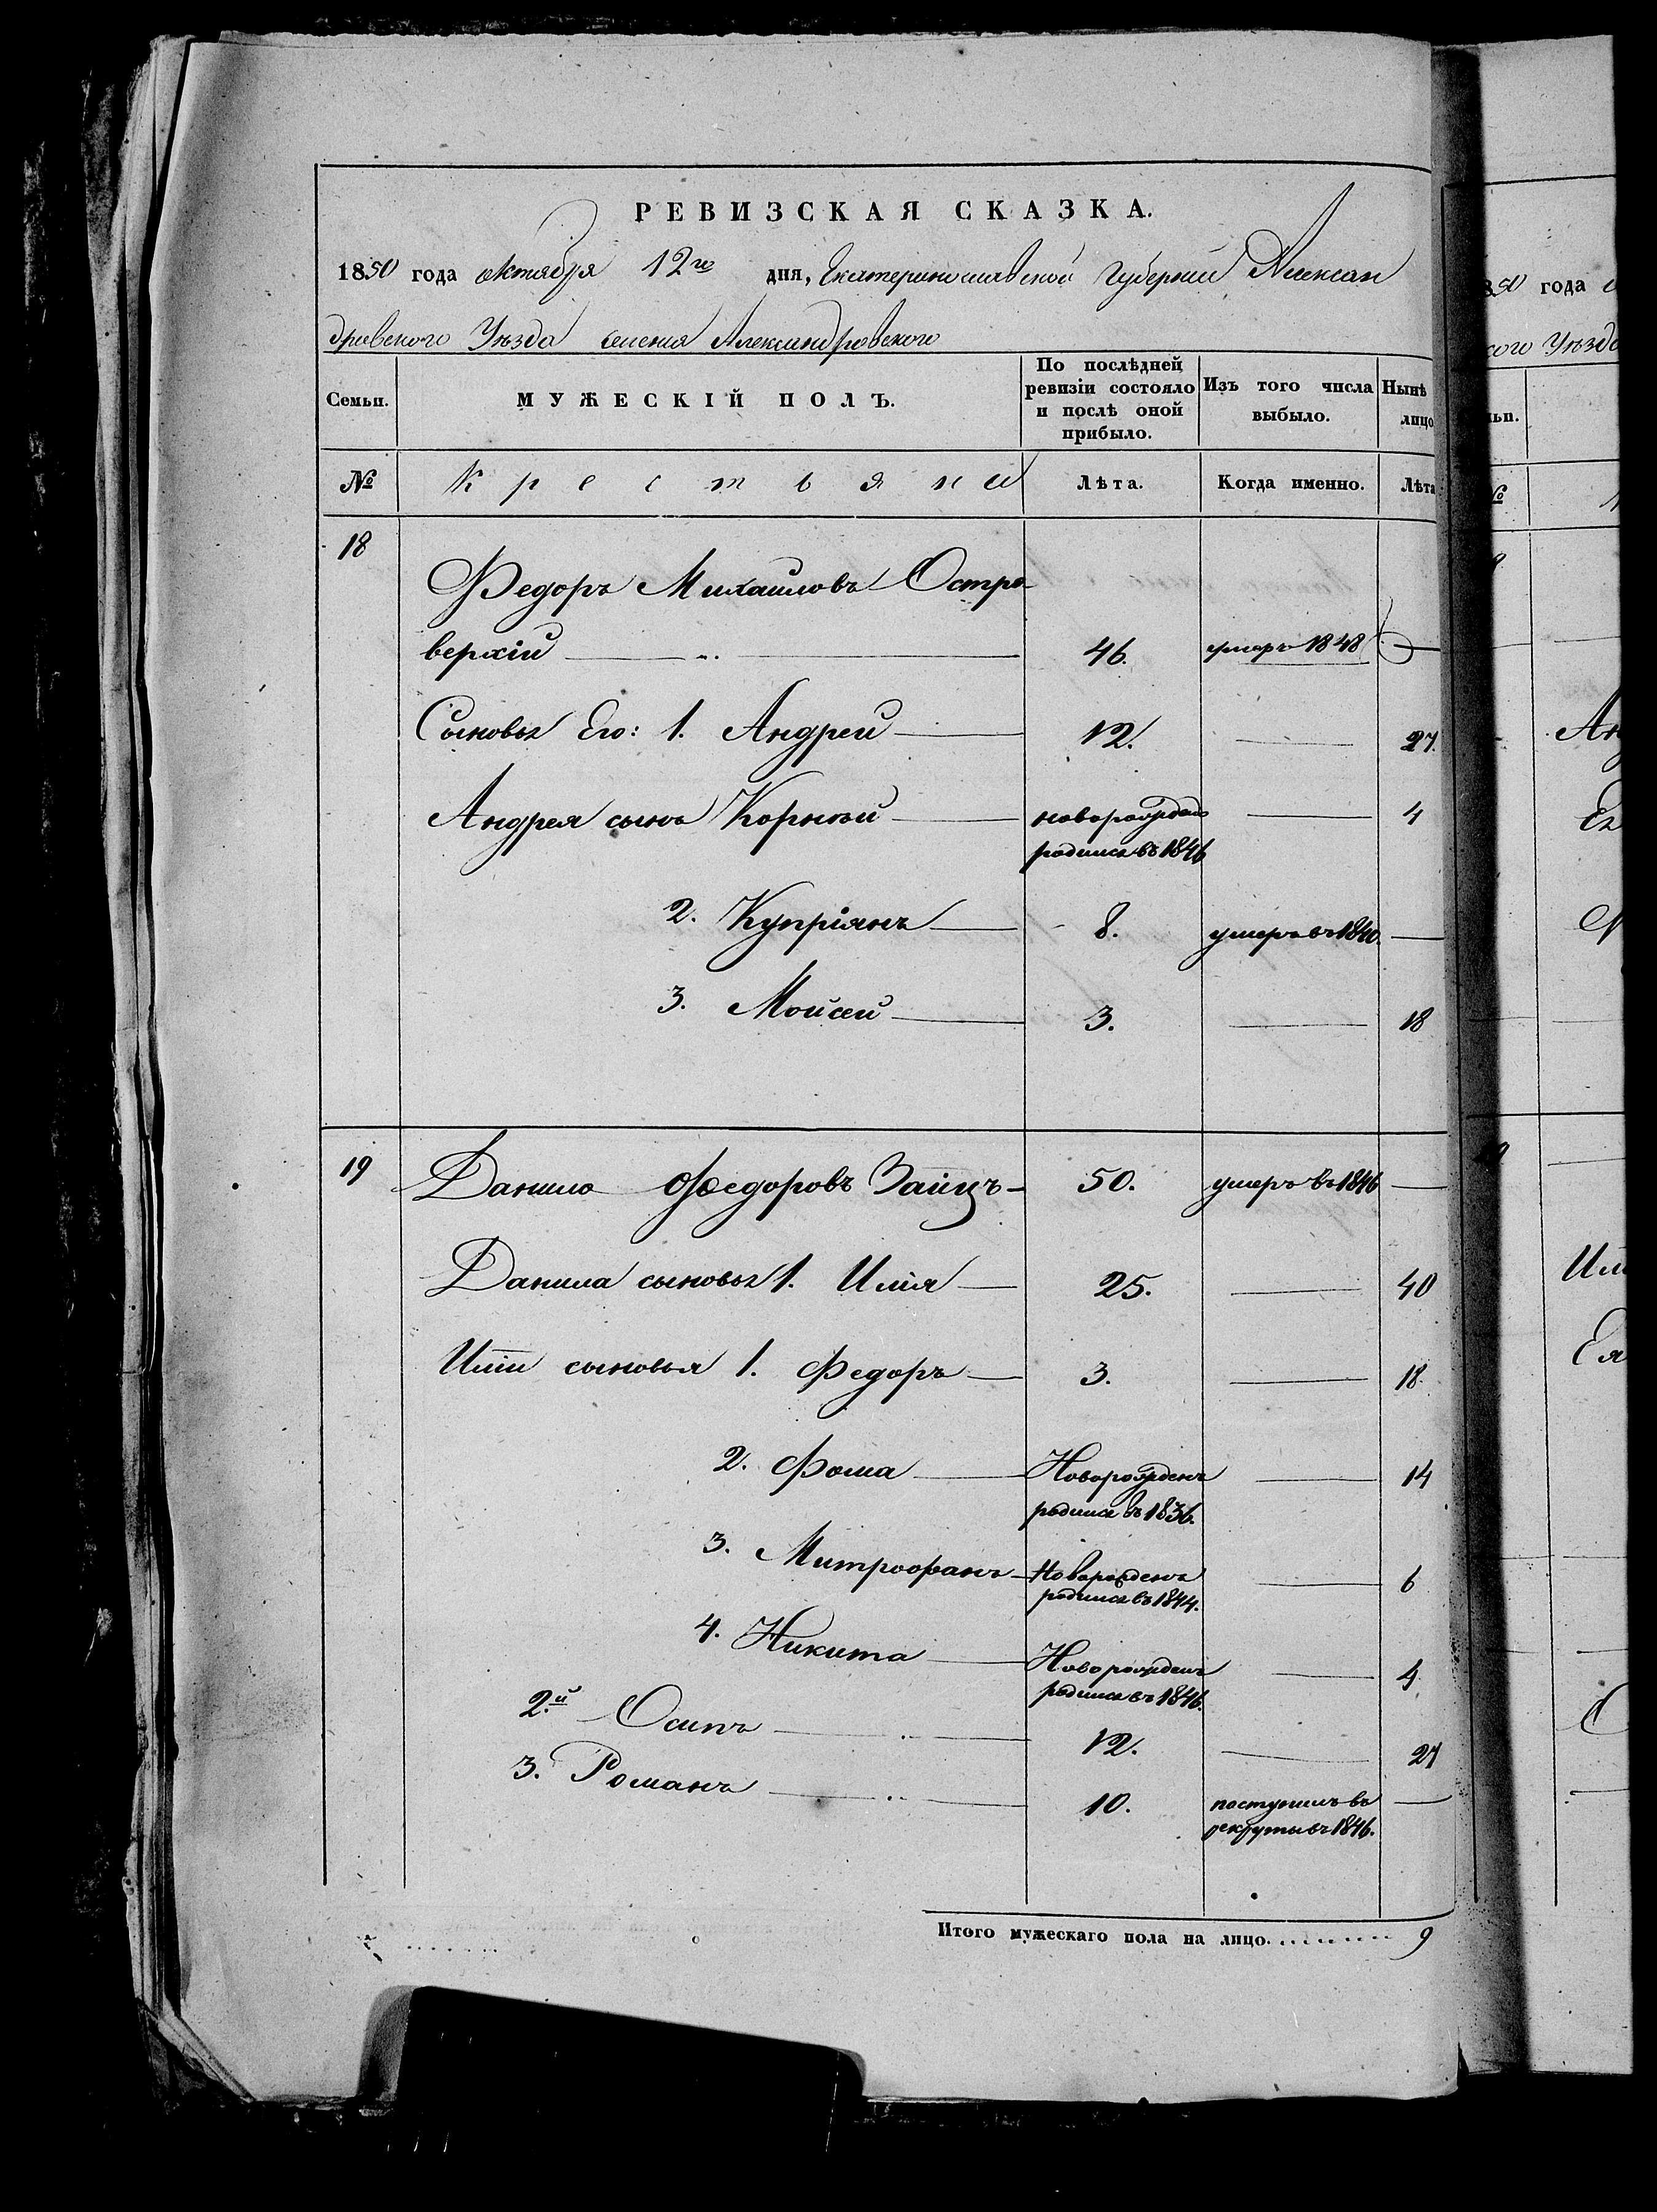 РЕВИЗСКАЯ СКАЗКА.
1850 года октября 12го дня, Екатеринославской Губернии Алексан
дровского Уѣзда селения Александровского
Семьи. МУЖЕСКІЙ ПОЛЪ. По послѣдней ревизіи состояло и послѣ оной прибыло. Изъ того числа выбыло. Нынѣ лицо
№ Крестьяне Лѣта. Когда именно. Лѣта
18
Федоръ Михаиловъ Остро-
верхій 46. умеръ 1848
Сыновья Его: 1. Андрей 12. 27.
Андрея сынъ Корнѣй новорожденъ 4
родился въ 1846
2. Купріянъ 8. умеръ въ 1840.
3. Мойсей 3. 18
19 Данило Федоровъ Заицъ 50. умеръ въ 1846
Данила сыновья 1. Илія 25. 40
Иліи сыновья 1. Федоръ 3. 18.
2. Фома Новорожденъ 14
родился въ 1836.
3. Митрофанъ Новорожденъ 6
родился въ 1844.
4. Никита Новорожденъ 4
родился въ 1846.
2.й Осипъ 12. 27
3. Романъ 10. поступилъ въ
рекруты въ 1846.
Итого мужескаго пола на лицо. 9
850 года
кого Уѣзда
ьи.
№
19
Ан
Ег
Ил
Ея